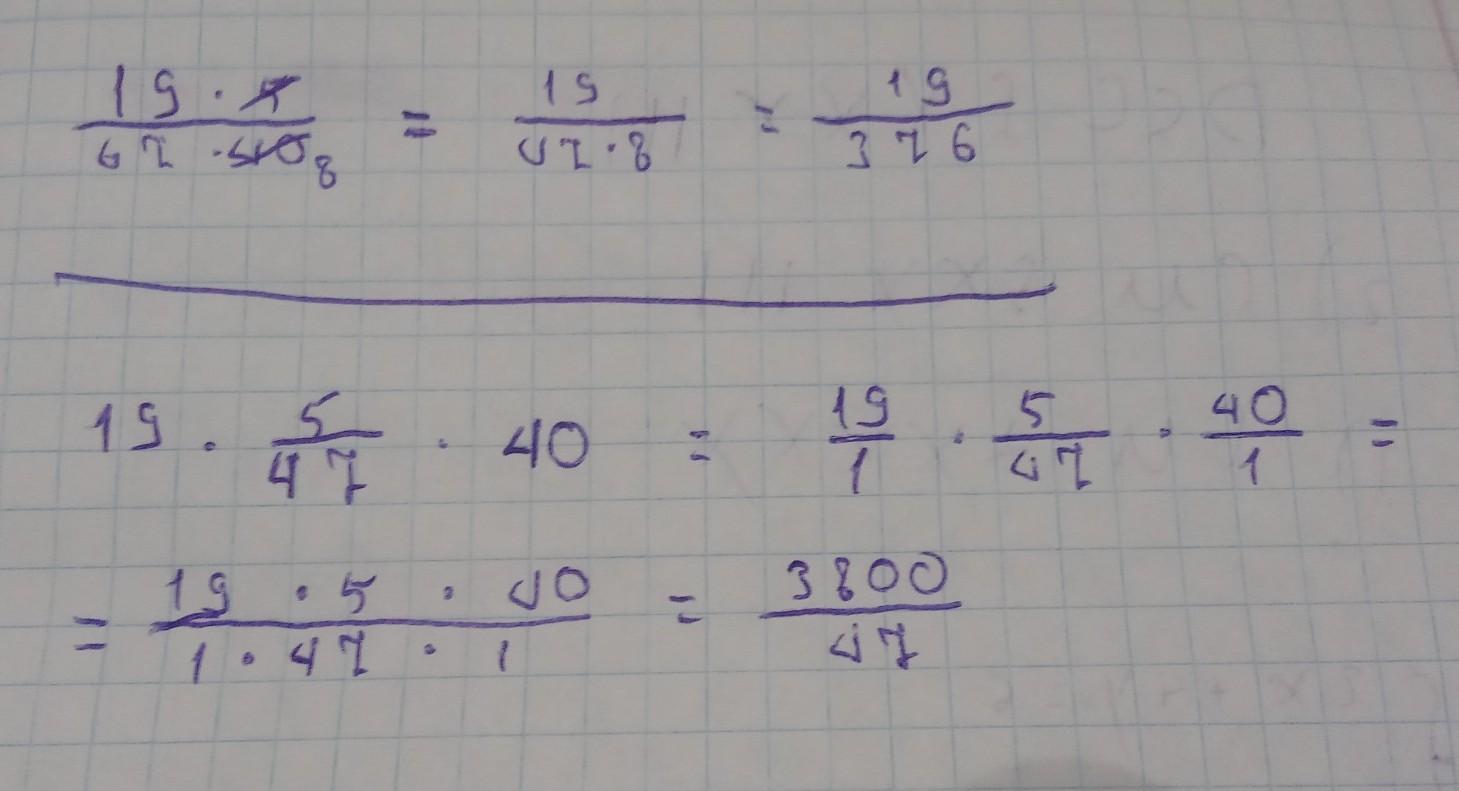 19 · 5 / 47 · 40 8 = 19 / 47 · 8 = 19 / 376
19 · 5/47 · 40 = 19/1 · 5/47 · 40/1 =
= 19 · 5 · 40 / 1 · 47 · 1 = 3800 / 47